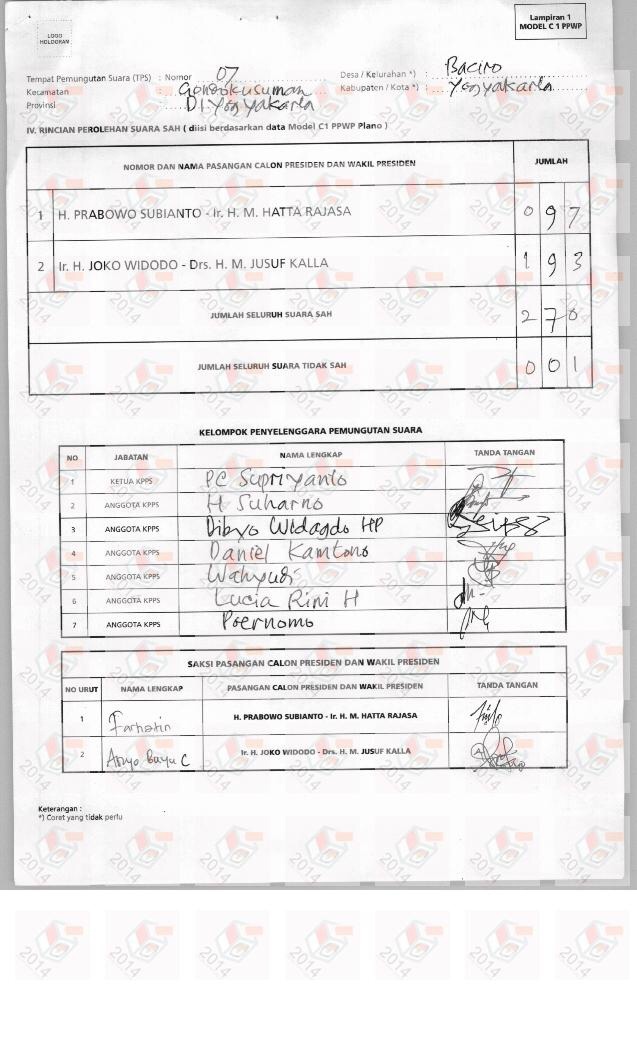 Lampiran 1
MODEL C 1 PPWP
LOGO
HOLOGRAM
Tempat Pemungutan Suara (TPS) : Nomor 07 Desa / Kelurahan *) : Baciro
Kecamatan : Gondokusuman Kabupaten / Kota *) : Yogyakarta
Provinsi : DI Yogyakarta
IV. RINCIAN PEROLEHAN SUARA SAH ( diisi berdasarkan data Model C1 PPWP Plano )
NOMOR DAN NAMA PASANGAN CALON PRESIDEN DAN WAKIL PRESIDEN JUMLAH
1 H. PRABOWO SUBIANTO - Ir. H. M. HATTA RAJASA 0 9 7
2 Ir. H. JOKO WIDODO - Drs. H. M. JUSUF KALLA 1 9 3
JUMLAH SELURUH SUARA SAH 2 7 0
JUMLAH SELURUH SUARA TIDAK SAH 0 0 1
KELOMPOK PENYELENGGARA PEMUNGUTAN SUARA
NO JABATAN NAMA LENGKAP TANDA TANGAN
1 KETUA KPPS PC Supriyanto
2 ANGGOTA KPPS H Suharno
3 ANGGOTA KPPS Dibyo Widagdo HP
4 ANGGOTA KPPS Daniel Kamtono
5 ANGGOTA KPPS Wahyudi
6 ANGGOTA KPPS Lucia Rini H
7 ANGGOTA KPPS Poernomo
SAKSI PASANGAN CALON PRESIDEN DAN WAKIL PRESIDEN
NO URUT NAMA LENGKAP PASANGAN CALON PRESIDEN DAN WAKIL PRESIDEN TANDA TANGAN
1 Farhatin H. PRABOWO SUBIANTO - Ir. H. M. HATTA RAJASA
2 Aryo Bayu C Ir. H. JOKO WIDODO - Drs. H. M. JUSUF KALLA
Keterangan :
*) Coret yang tidak perlu
2014